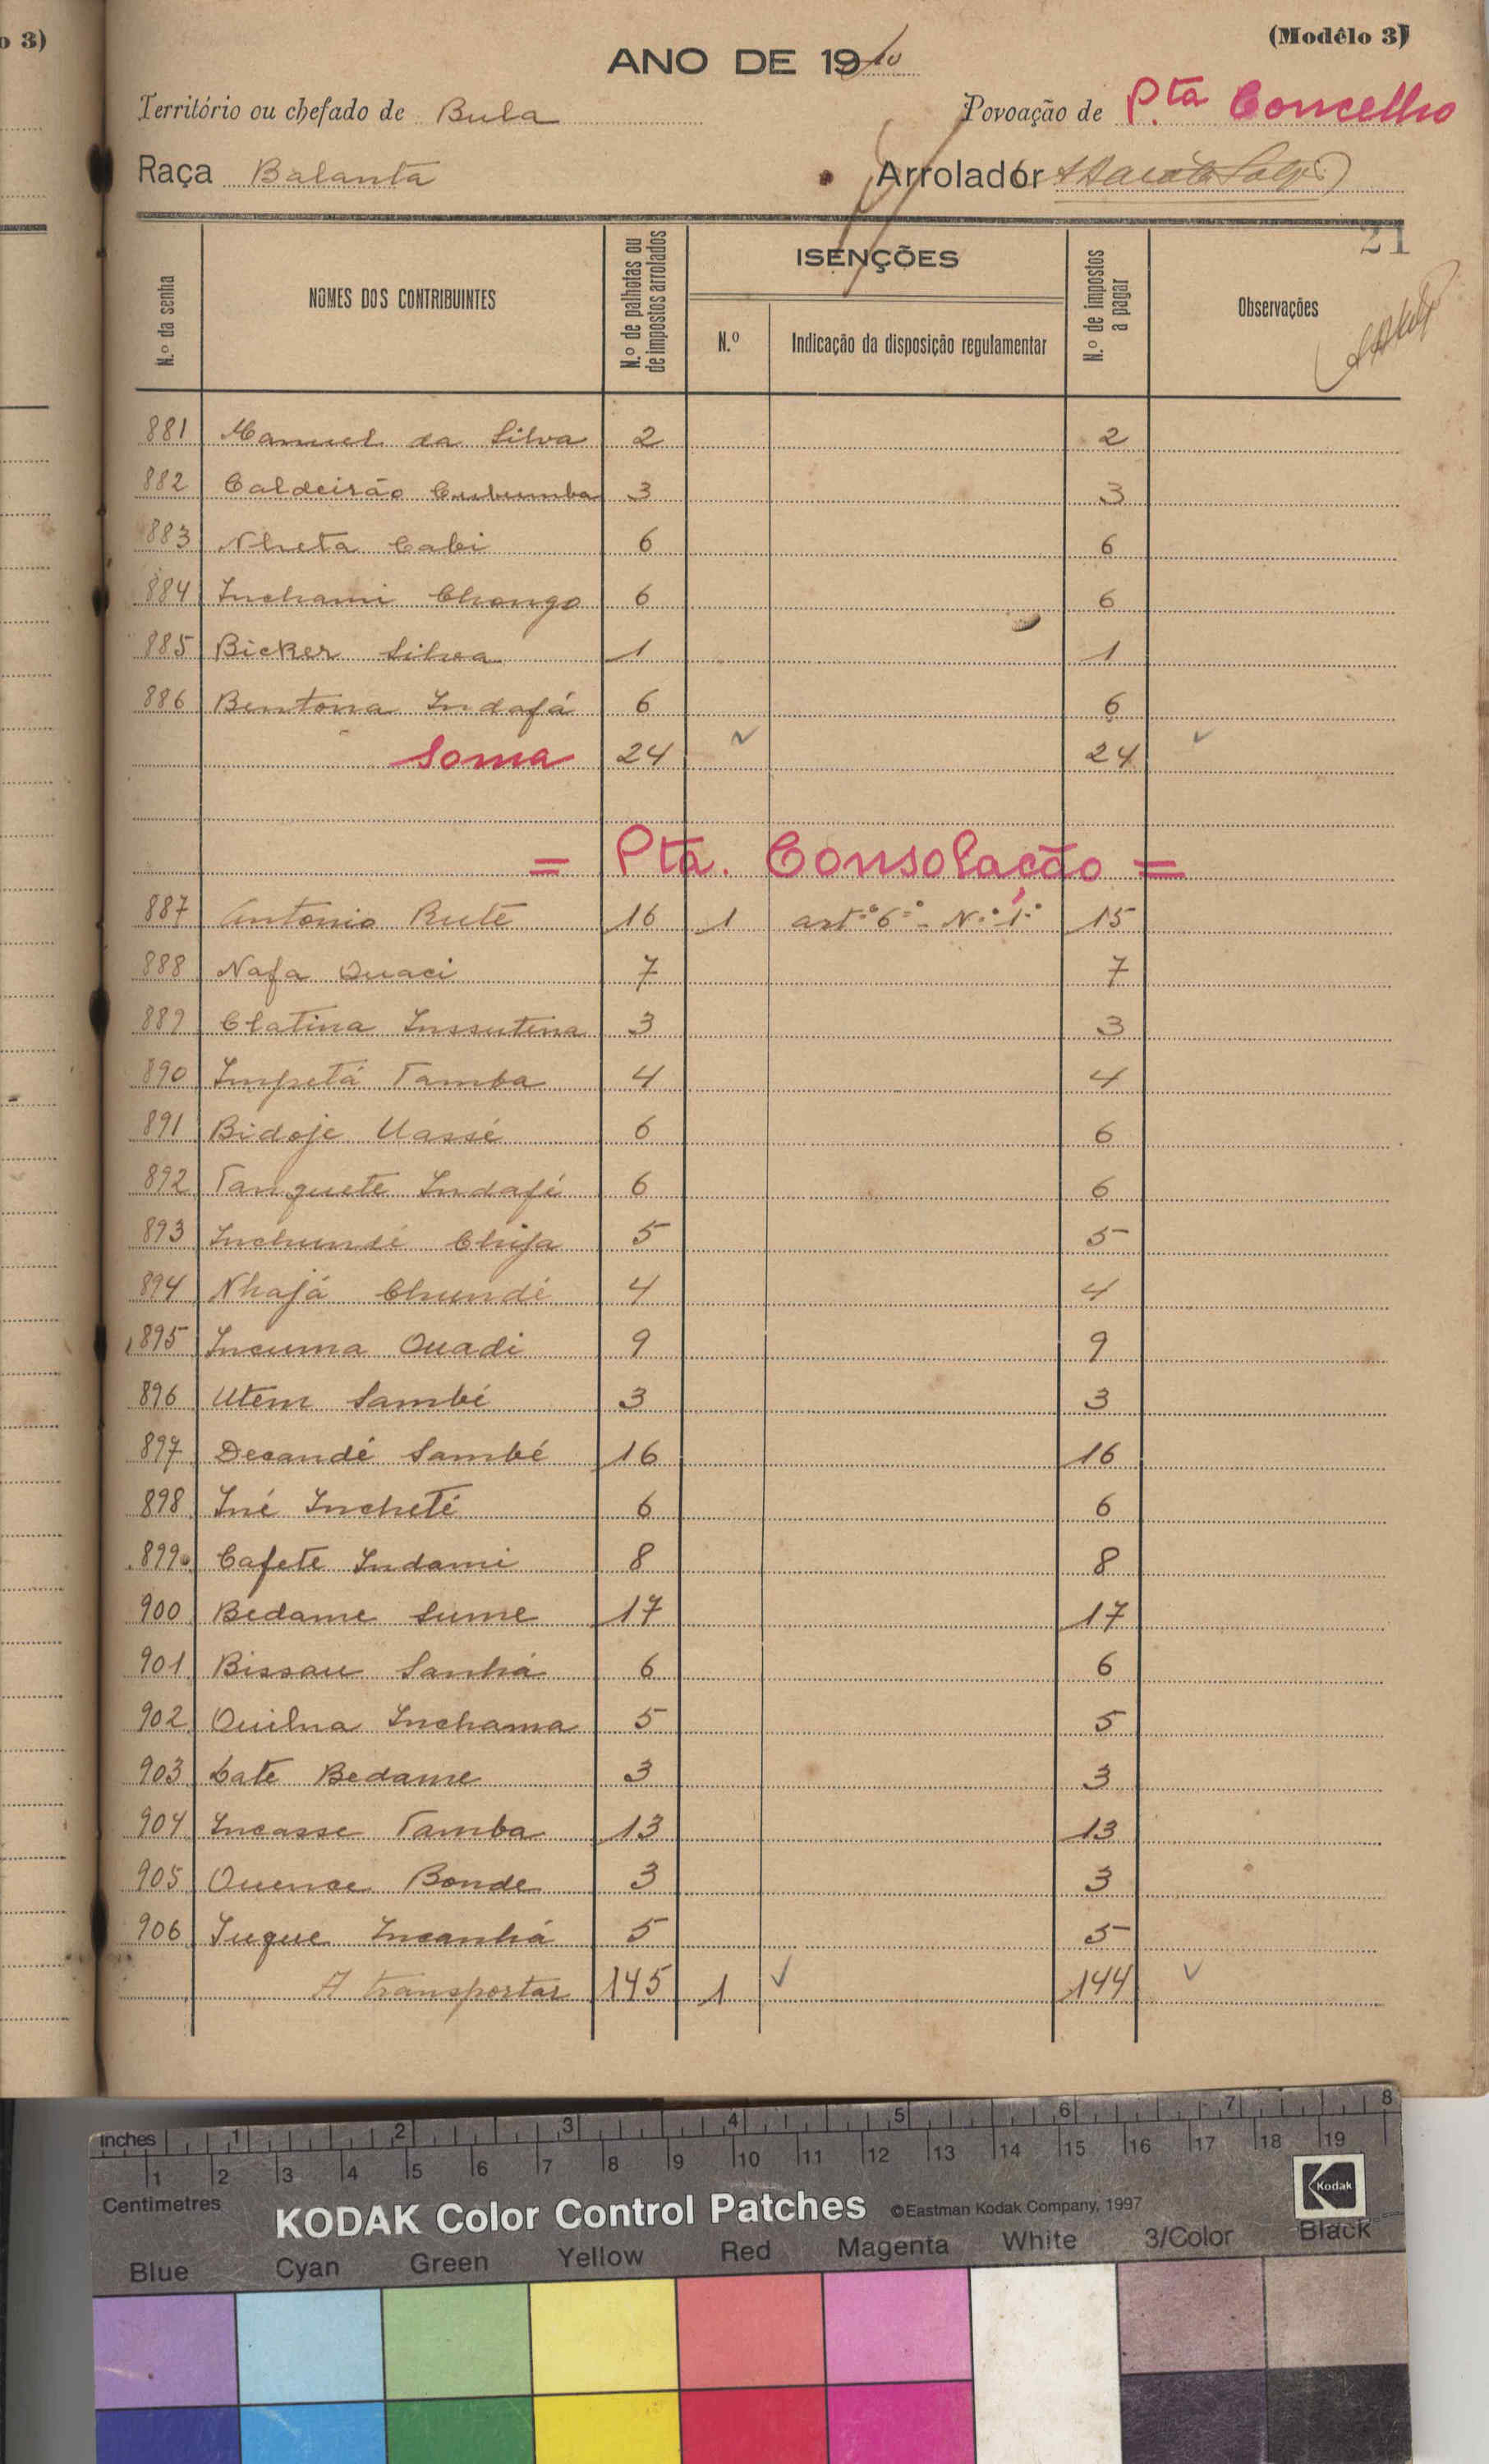 o 3)
(Modêlo 3)
ANO DE 1940
Território ou chefado de Bula
Povoação de P.ta Concelho
Raça Balanta
Arrolador
21
N.º da senha
NOMES DOS CONTRIBUINTES
N.º de palhotas ou de impostos arrolados
ISENÇÕES
N.º
Indicação da disposição regulamentar
N.º de impostos a pagar
Observações
881 Manuel da Silva 2 2
882 Caldeirão Cubumba 3 3
883 Nheta Cabi 6 6
884 Inchami Chongo 6 6
885 Bicker Silva 1 1
886 Bentona Indafá 6 6
Soma 24 24
= Pta. Consolação =
887 Antonio Rute 16 1 art.º 6.º - N.º 1.º 15
888 Nafa Quaci 7 7
889 Clatina Inssutina 3 3
890 Impetá Tamba 4 4
891 Bidoje Uassé 6 6
892 Tanguete Indafé 6 6
893 Inchundé Chifa 5 5
894 Nhajá Chundé 4 4
895 Incuma Quadi 9 9
896 Utem Sambé 3 3
897 Decandé Sambé 16 16
898 Iné Incheté 6 6
899 Cafete Indami 8 8
900 Bedame Sume 17 17
901 Bissau Sanhá 6 6
902 Quilna Inchama 5 5
903 Late Bedame 3 3
904 Incasse Tamba 13 13
905 Quence Bonde 3 3
906 Iuque Incanhá 5 5
A transportar 145 1 144
inches 1 2 3 4 5 6 7 8
1 2 3 4 5 6 7 8 9 10 11 12 13 14 15 16 17 18 19
Centimetres
KODAK Color Control Patches ©Eastman Kodak Company, 1997
Kodak
Blue Cyan Green Yellow Red Magenta White 3/Color Black